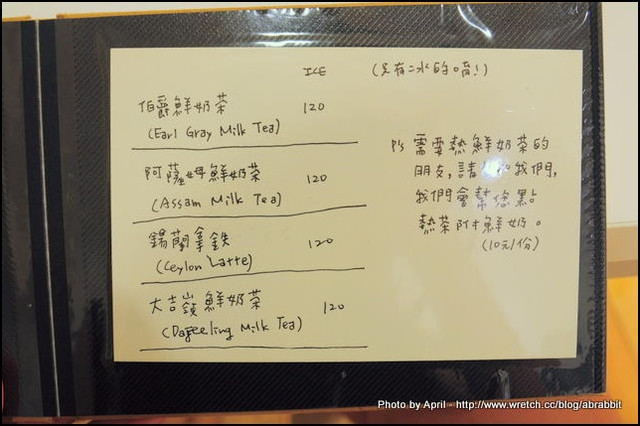 ICE (只有冰的唷!)
伯爵鮮奶茶 120
(Earl Gray Milk Tea)
阿薩姆鮮奶茶 120
(Assam Milk Tea)
錫蘭拿鐵 120
(Ceylon Latte)
大吉嶺鮮奶茶 120
(Dageeling Milk Tea)
P's 需要熱鮮奶茶的
朋友,請 我們,
我們會幫您點
熱茶附鮮奶。
(10元/份)
Photo by April - http://www.wretch.cc/blog/abrabbit